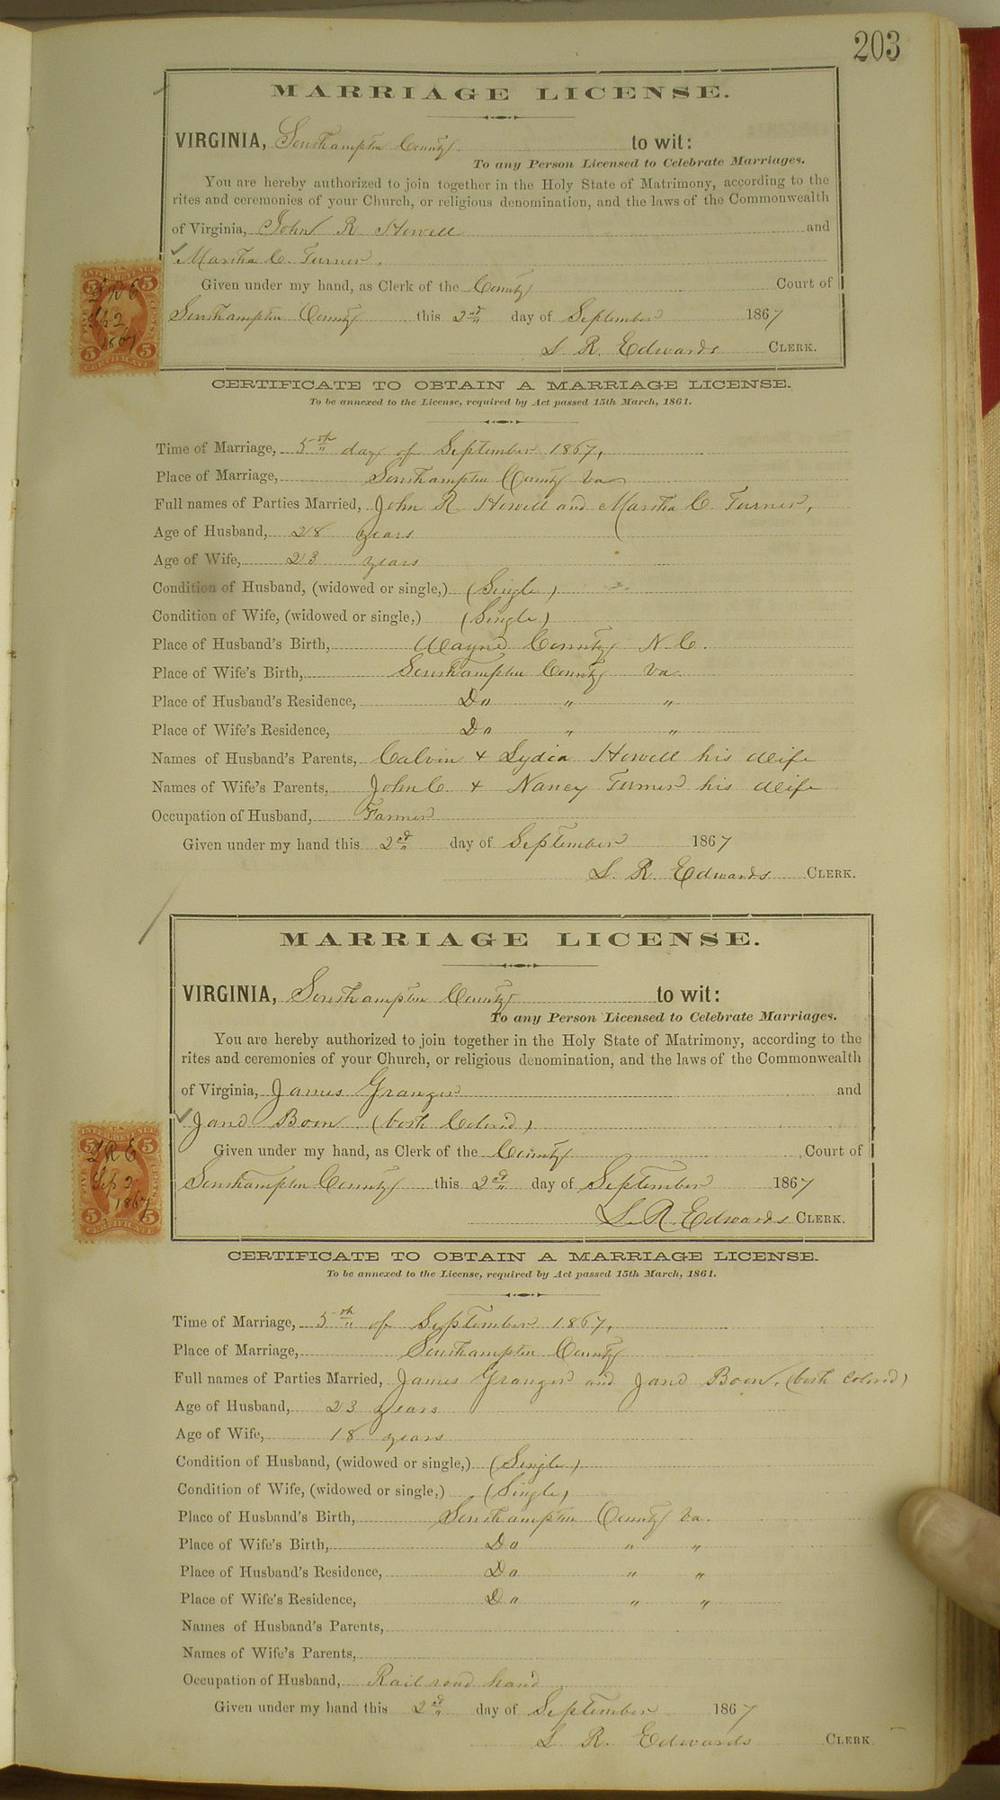 203
MARRIAGE LICENSE.
VIRGINIA, Southampton County to wit:
To any Person Licensed to Celebrate Marriages.
You are hereby authorized to join together in the Holy State of Matrimony, according to the
rites and ceremonies of your Church, or religious denomination, and the laws of the Commonwealth
of Virginia, John R Howell and
Martha C. Turner.
Given under my hand, as Clerk of the County Court of
Southampton County this 2nd day of September 1867
L R. Edwards CLERK.
5 5
LRE
2
1867
5 CERTIFICATE 5
CERTIFICATE TO OBTAIN A MARRIAGE LICENSE.
To be annexed to the License, required by Act passed 15th March, 1861.
Time of Marriage, 5th day of September 1867,
Place of Marriage, Southampton County Va
Full names of Parties Married, John R Howell and Martha C. Turner,
Age of Husband, 28 years
Age of Wife, 23 years
Condition of Husband, (widowed or single,) (Single)
Condition of Wife, (widowed or single,) (Single)
Place of Husband's Birth, Wayne County N.C.
Place of Wife's Birth, Southampton County Va
Place of Husband's Residence, Do " "
Place of Wife's Residence, Do " "
Names of Husband's Parents, Calvin + Lydia Howell his Wife
Names of Wife's Parents, John C. + Nancy Turner his Wife
Occupation of Husband, Farmer
Given under my hand this 2nd day of September 1867
L. R. Edwards CLERK.
MARRIAGE LICENSE.
VIRGINIA, Southampton County to wit:
To any Person Licensed to Celebrate Marriages.
You are hereby authorized to join together in the Holy State of Matrimony, according to the
rites and ceremonies of your Church, or religious denomination, and the laws of the Commonwealth
of Virginia, James Granger and
Jane Boon (both Colored)
Given under my hand, as Clerk of the County Court of
Southampton County this 2nd day of September 1867
L. R. Edwards CLERK.
5 5
LRE
Sep 2
1867
5 CERTIFICATE 5
CERTIFICATE TO OBTAIN A MARRIAGE LICENSE.
To be annexed to the License, required by Act passed 15th March, 1861.
Time of Marriage, 5th of September 1867,
Place of Marriage, Southampton County
Full names of Parties Married, James Granger and Jane Boon, (both Colored)
Age of Husband, 23 years
Age of Wife, 18 years
Condition of Husband, (widowed or single,) (Single)
Condition of Wife, (widowed or single,) (Single)
Place of Husband's Birth, Southampton County Va.
Place of Wife's Birth, Do " "
Place of Husband's Residence, Do " "
Place of Wife's Residence, Do " "
Names of Husband's Parents,
Names of Wife's Parents,
Occupation of Husband, Rail road hand
Given under my hand this 2nd day of September 1867
L. R. Edwards CLERK